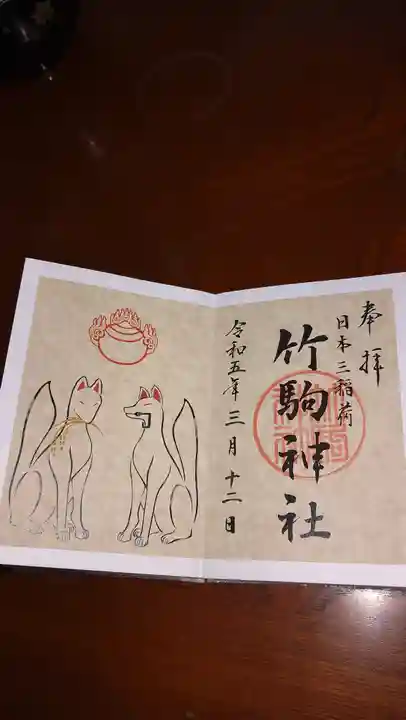 奉拝
日本三稲荷
竹駒神社
令和五年三月十二日